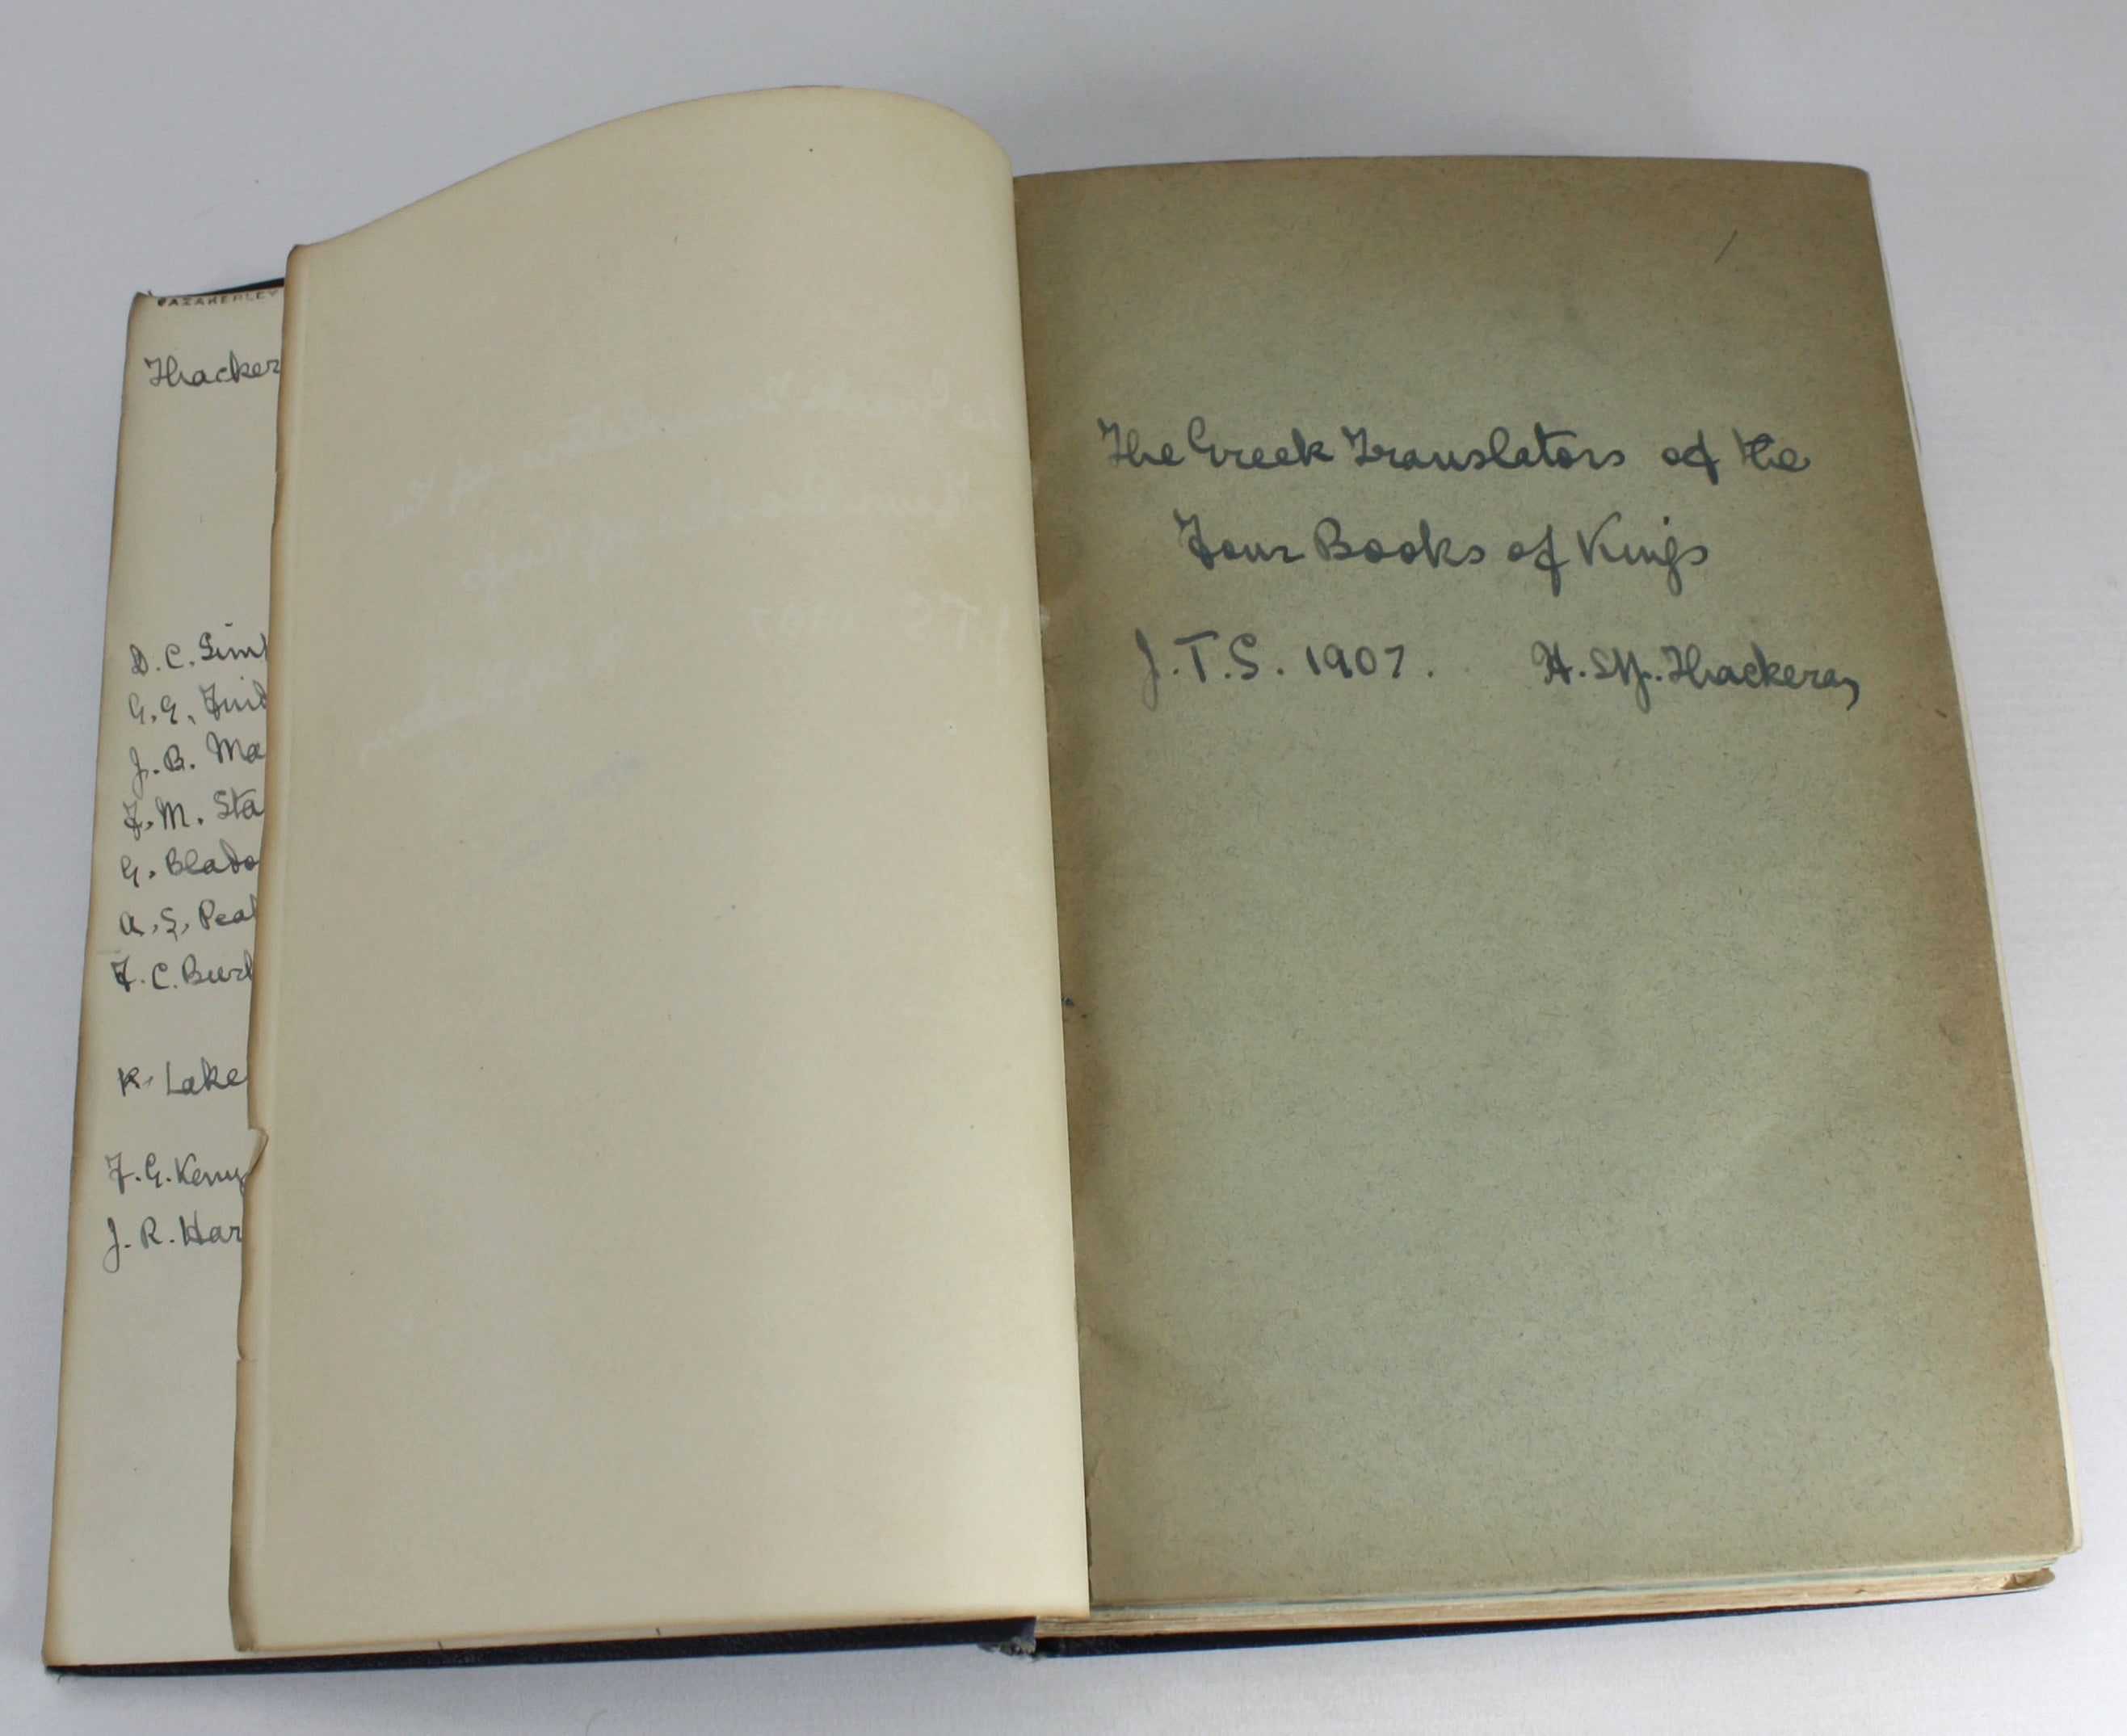 CAZAKERLEY
Thacker
D. C. Simp
G. G. Find
J. B. Ma
F. M. Sta
G. Blado
A. S. Peak
F. C. Burk
K. Lake
F. G. Keny
J. R. Har
The Greek Translators of the
Four Books of Kings
J. T. S. 1907. H. St J. Thackeray